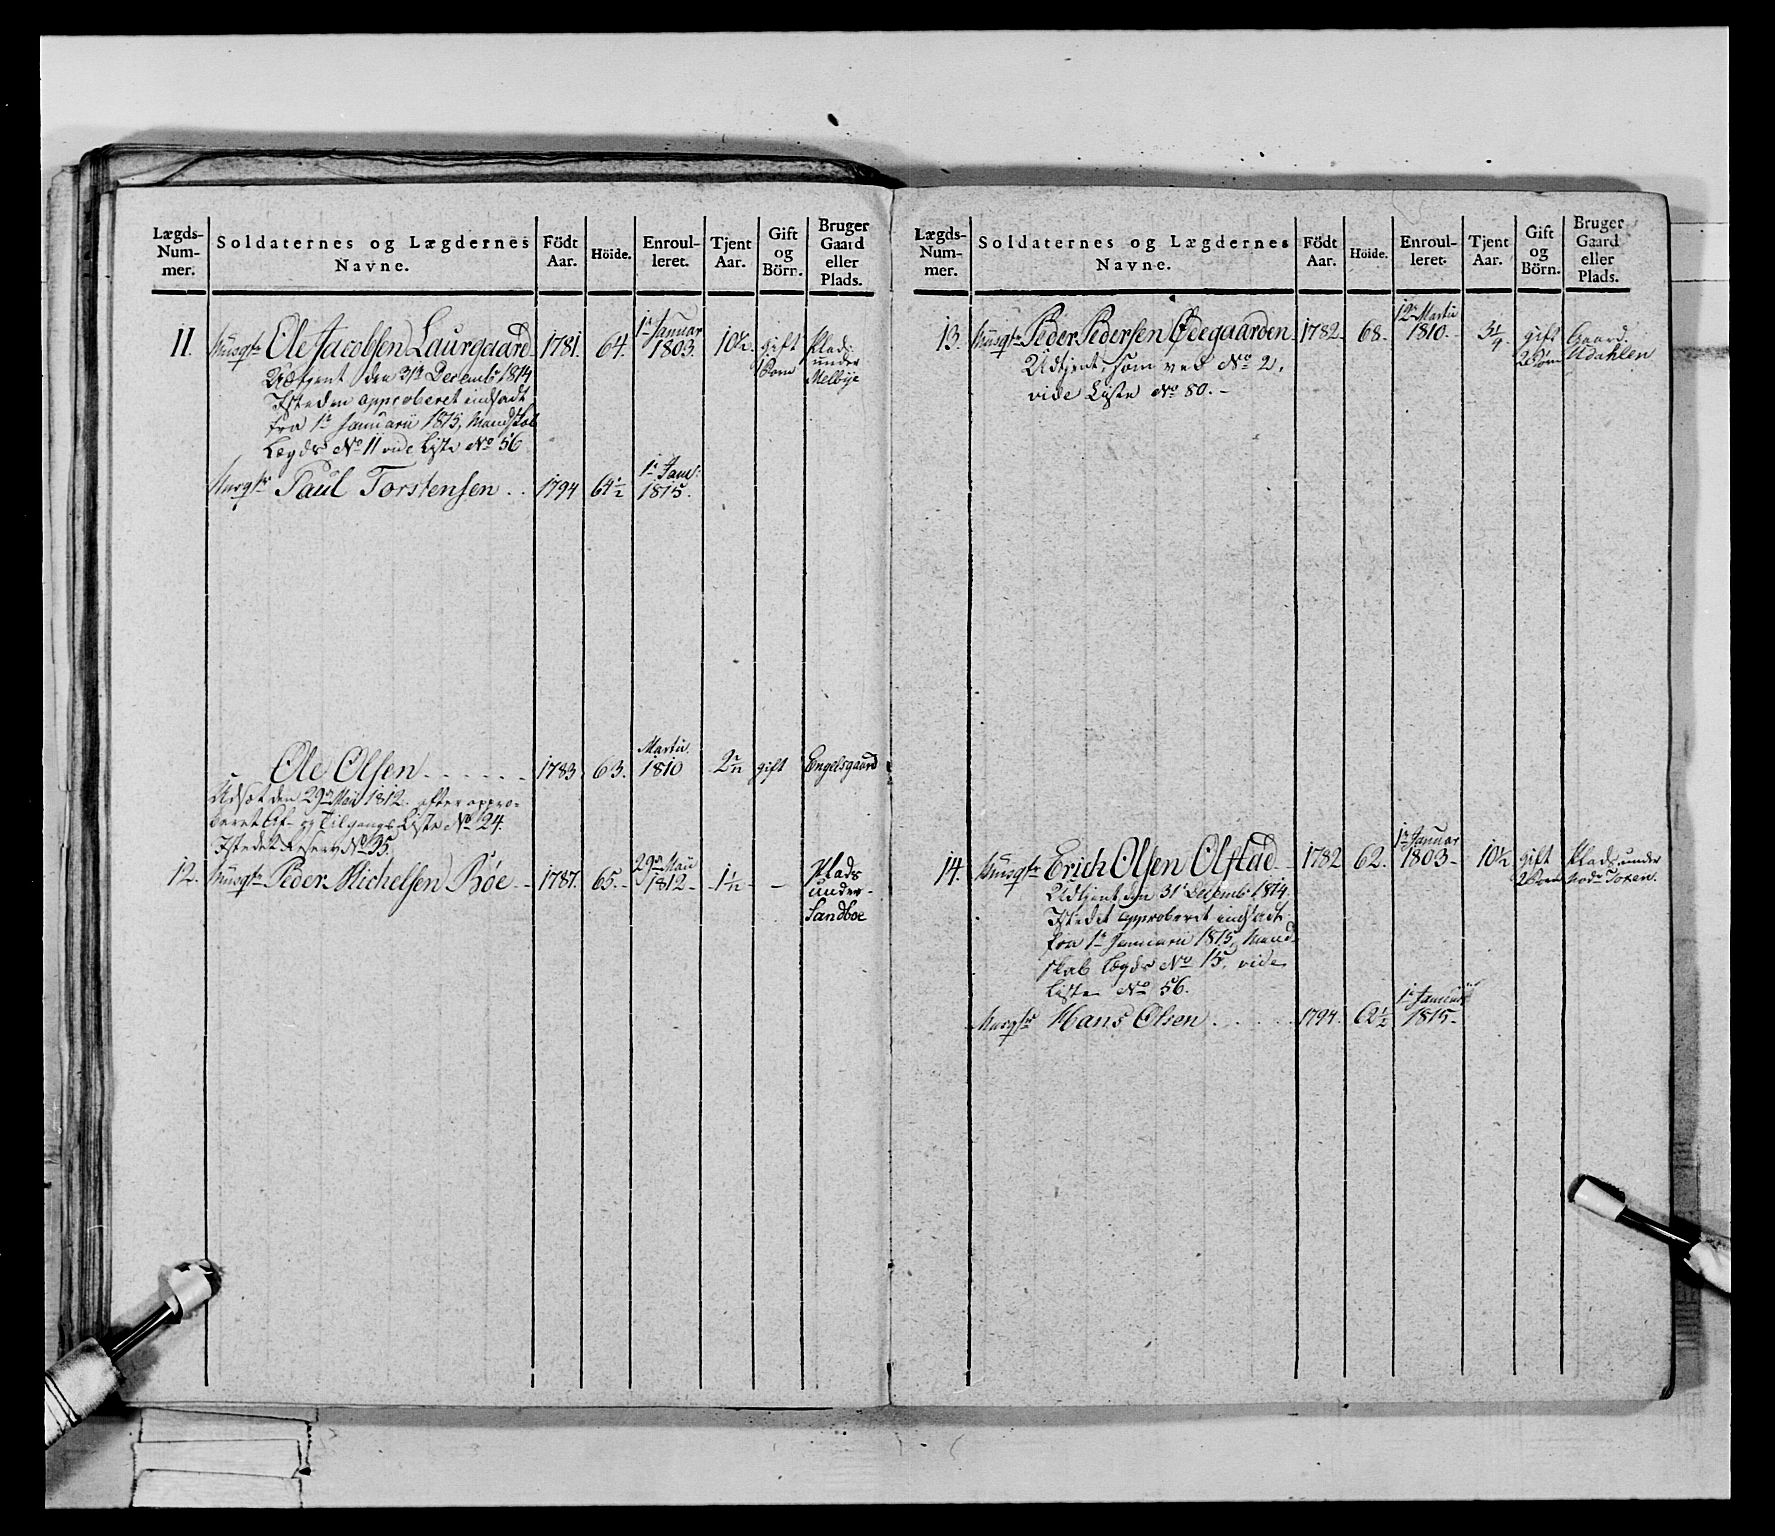 Lægds-
Num-
mer.
Soldaternes og Lægdernes
Navne.
Födt
Aar.
Höide.
Enroul-
leret.
Tjent
Aar.
Gift
og
Börn.
Bruger
Gaard
eller
Plads.
11. Musqtr Ole Jacobsen Laurgaard 1781. 64. 1te Januar 1803. 10½ gift 1 Born Plads under Melbye
Udtjent den 31te Decembr 1814
Isteden approberet indsadt
fra 1te Januarii 1815, Mandskab
Lægds No 11 vide Liste No 56
Musqtr Paul Torstensen . . 1794 64½ 1te Janr: 1815.
Ole Olsen . . . . . . 1783 63. Martii 1810 gift Engelsgaard
Udsat den 29de Maii 1812. efter appro-
beret Af- og Tilgangs Liste No 24.
Istedet Reserv No 35.
12. Musqtr Peder Michelsen Böe . . 1787. 65. 29de Maii 1812 1½ - Plads under Sandboe
Lægds-
Num-
mer.
Soldaternes og Lægdernes
Navne.
Födt
Aar.
Höide.
Enroul-
leret.
Tjent
Aar.
Gift
og
Börn.
Bruger
Gaard
eller
Plads.
13. Musqtr Peder Pedersen Ødegaarden 1782 68. 12te Martii 1810. 3¼ gift 2 Börn Gaard. Udahlen
Udtjent, som ved No 2,
vide Liste No 80. -
14. Musqtr Erich Olsen Olstad 1782 62. 1te Januar 1803 10½ gift 2 Born Plads under
Udtjent den 31te Decembr 1814.
Istedet approberet indsadt
fra 1te Januarii 1815, Mand-
skab Lægds No 15, vide
Liste No 56.
Musqtr Hans Olsen . . . . . 1794. 62½ 1te Januarii 1815